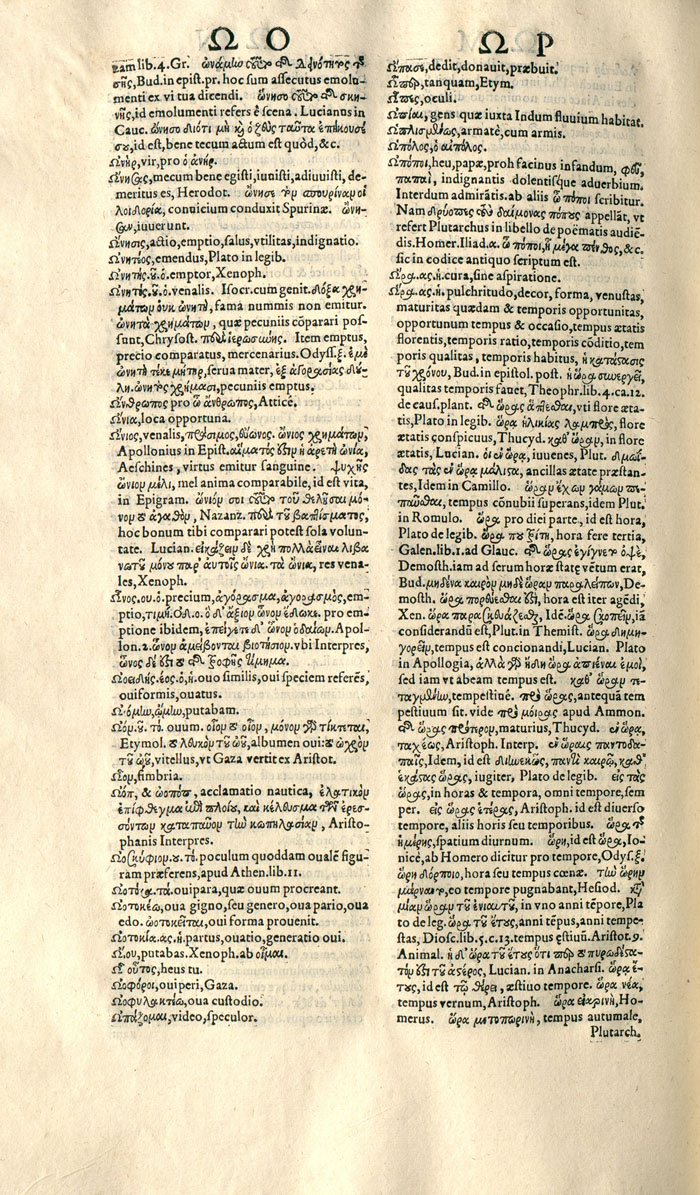 Ω Ο
zam lib.4. Gr.
σῃς, Bud. in epist. pr. hoc sum assecutus emolu-
menti ex vi tua dicendi.
νῆς, id emolumenti refers è scena. Lucianus in
Cauc. ὤνησο διότι μὴ
id est, bene tecum actum est quòd, &c.
Ὠνὴρ, vir, pro ὁ ἀνήρ.
Ὤνησας, mecum bene egisti, iuuisti, adiuuisti, de-
meritus es, Herodot.
λοιδορία, conuicium conduxit Spurinæ. ὤνη-
σαν, iuuerunt.
Ὤνησις, actio, emptio, salus, vtilitas, indignatio.
Ὠνητέος, emendus, Plato in legib.
Ὠνητὴς. ȣ. ὁ. emptor, Xenoph.
Ὠνητός. ȣ. ὁ. venalis. Isocr. cum genit. δόξα χρη-
μάτων οὐκ ὠνητὴ, fama nummis non emitur.
ὠνητὰ χρημάτων, quæ pecuniis cōparari pos-
sunt, Chrysost. περὶ ἱερωσύνης. Item emptus,
precio comparatus, mercenarius. Odyss. ξ. ἐμὲ δ᾽
ὠνητὴ τέκε μήτηρ, serua mater, ἐξ ἀγορασίας δού-
λη. ὠνητὸς χρήμασι, pecuniis emptus.
Ὤνθρωπος pro ὦ ἄνθρωπος, Atticè.
Ὠνία, loca opportuna.
Ὤνιος, venalis, πράσιμος, εὔωνος. ὤνιος χρημάτων,
Apollonius in Epist. αἵματός ἐστιν ἡ ἀρετὴ ὠνία,
Aeschines, virtus emitur sanguine. ψυχῆς
ὤνιον μέλι, mel anima comparabile, id est vita,
in Epigram. ὤνιόν σοι τοῦ θελῆσαι μό-
νον τὸ ἀγαθὸν, Nazanz. περὶ τοῦ βαπτίσματος,
hoc bonum tibi comparari potest sola volun-
tate. Lucian. εἰκάζειν δὲ χρὴ πολλὰ εἶναι λιβα
νωτοῦ μόνου παρ᾽ αὐτοῖς ὤνια. τὰ ὤνια, res vena-
les, Xenoph.
Ὦνος. ου. ὁ. precium, ἀγόρασμα, ἀγορασμὸς, em-
ptio, τιμή. Od. ο. ὁ δ᾽ ἄξιον ὦνον ἔδωκε. pro em-
ptione ibidem, ἐπείγετε δ᾽ ὦνον ὁδαίων. Apol-
lon. 2. ὦνον ἀμείβονται βιοτήσιον. vbi Interpres,
ὦνος δέ ἐστι τὸ τῆς τροφῆς τίμημα.
Ὠοειδὴς. έος. ὁ, ἡ. ouo similis, oui speciem referēs,
ouiformis, ouatus.
Ὠόμην, ᾤμην, putabam.
Ὠόν. ȣ. τό. ouum. οἶον τὸ οἷον, μόνον γὰρ τίκτεται,
Etymol. τὸ λευκὸν τοῦ ὠοῦ, albumen oui: τὸ ὠχρὸν
τοῦ ὠοῦ, vitellus, vt Gaza vertit ex Aristot.
Ὠον, fimbria.
Ὠὸπ, & ὠοπόπ, acclamatio nautica, ἐλατικὸν
ἐπίφθεγμα πλοίου, καὶ κέλευσμα τῶν ἐρεσ-
σόντων καταπαῦον τὴν κωπηλασίαν, Aristo-
phanis Interpres.
Ὠοσκύφιον. ȣ. τό. poculum quoddam oualē figu-
ram præferens, apud Athen. lib. 11.
Ὠοτόκα. τὰ. ouipara, quæ ouum procreant.
Ὠοτοκέω, oua gigno, seu genero, oua pario, oua
edo. ὠοτοκεῖται, oui forma prouenit.
Ὠοτοκία. ας. ἡ. partus, ouatio, generatio oui.
Ὤου, putabas. Xenoph. ab οἶμαι.
Ὦ οὗτος, heus tu.
Ὠοφόροι, ouiperi, Gaza.
Ὠοφυλακτέω, oua custodio.
Ὠπάζομαι, video, speculor.
Ω Ρ
Ὤπασε, dedit, donauit, præbuit.
Ὥσπερ, tanquam, Etym.
Ὦπες, oculi.
Ὠπίαι, gens quæ iuxta Indum fluuium habitat.
Ὡπλισμένως, armatè, cum armis.
Ὡπόλος, ὁ αἰπόλος.
Ὤποποι, heu, papæ, proh facinus infandum, φεῦ,
παπαὶ, indignantis dolentisque aduerbium.
Interdum admirātis. ab aliis ὢ πόποι scribitur.
Nam δρύοπες τοὺς δαίμονας πόπους appellāt, vt
refert Plutarchus in libello de poëmatis audiē-
dis. Homer. Iliad. α. ὢ πόποι, ἦ μέγα πένθος, &c.
sic in codice antiquo scriptum est.
Ὤρα. ας. ἡ. cura, sine aspiratione.
Ὥρα. ας. ἡ. pulchritudo, decor, forma, venustas,
maturitas quædam & temporis opportunitas,
opportunum tempus & occasio, tempus ætatis
florentis, temporis ratio, temporis cōditio, tem
poris qualitas, temporis habitus, ἡ κατάστασις
τοῦ χρόνου, Bud. in epistol. post. ἡ ὥρα συνεργεῖ,
qualitas temporis fauet, Theophr. lib. 4. ca. 12.
de caus. plant. vti flore æta-
tis, Plato in legib. ὥρα ἡλικίας λαμπρὸς, flore
ætatis conspicuus, Thucyd. καθ᾽ ὥραν, in flore
ætatis, Lucian. οἱ ἐν ὥρα, iuuenes, Plut. θεραπαινί-
δας τὰς ἐν ὥρα μάλιστα, ancillas ætate præstan-
tes, Idem in Camillo. ὥραν ἔχων γάμων
tempus cōnubii superans, idem Plut.
in Romulo. ὥρα pro diei parte, id est hora,
Plato de legib. ὥρα που τρίτη, hora fere tertia,
Galen. lib. 1. ad Glauc. τῆς ὥρας ἐγίγνετο ὀψὲ,
Demosth. iam ad serum horæ statę vētum erat,
Bud. μηδένα καιρὸν μηδὲ ὥραν παραλείπων, De-
mosth. ὥρα πορεύεσθαι ἐστι, hora est iter agēdi,
Xen. ὥρα παρασκευάζεσθαι, Idē. ὥρα σκοπεῖν, iā
considerandū est, Plut. in Themist. ὥρα δημη-
γορεῖν, tempus est concionandi, Lucian. Plato
in Apollogia, ἀλλὰ γὰρ ἤδη ὥρα ἀπιέναι ἐμοὶ,
sed iam vt abeam tempus est. καθ᾽ ὥραν τε-
ταγμένην, tempestiuè. πρὸ ὥρας, antequā tem
pestiuum sit. vide πρὸ μοίρας apud Ammon.
τῆς ὥρας πρότερον, maturius, Thucyd. ἐν ὥρα,
ταχέως, Aristoph. Interp. ἐν ὥραις παντοδα-
παῖς, Idem, id est διηνεκῶς, παντὶ καιρῷ, καθ᾽
ἑκάστας ὥρας, iugiter, Plato de legib. εἰς τὰς
ὥρας, in horas & tempora, omni tempore, sem
per. εἰς ὥρας ἑτέρας, Aristoph. id est diuerso
tempore, aliis horis seu temporibus.
ἡμέρης, spatium diurnum. ὥρη, id est ὥρα, Io-
nicè, ab Homero dicitur pro tempore, Odys. ξ.
ὥρη δόρποιο, hora seu tempus cœnæ. τὴν ὥρην
μάρναντο, eo tempore pugnabant, Hesiod. κατὰ
μίαν ὥραν τοῦ ἐνιαυτοῦ, in vno anni tēpore, Pla
to de leg. ὥρα τοῦ ἔτους, anni tēpus, anni tempe-
stas, Diosc. lib. 5. c. 13. tempus ęstiuū. Aristot. 9.
Animal. ἡ δ᾽ ὥρα τοῦ ἔτους ὅτι περ τὸ πυρωδέστα-
τόν ἐστι τοῦ ἀέρος, Lucian. in Anacharsi. ὥρα ἔ-
τους, id est τῷ θέρει, æstiuo tempore. ὥρα νέα,
tempus vernum, Aristoph. ὥρα εἰαρινὴ, Ho-
merus. ὥρα μετοπωρινὴ, tempus autumale,
Plutarch.